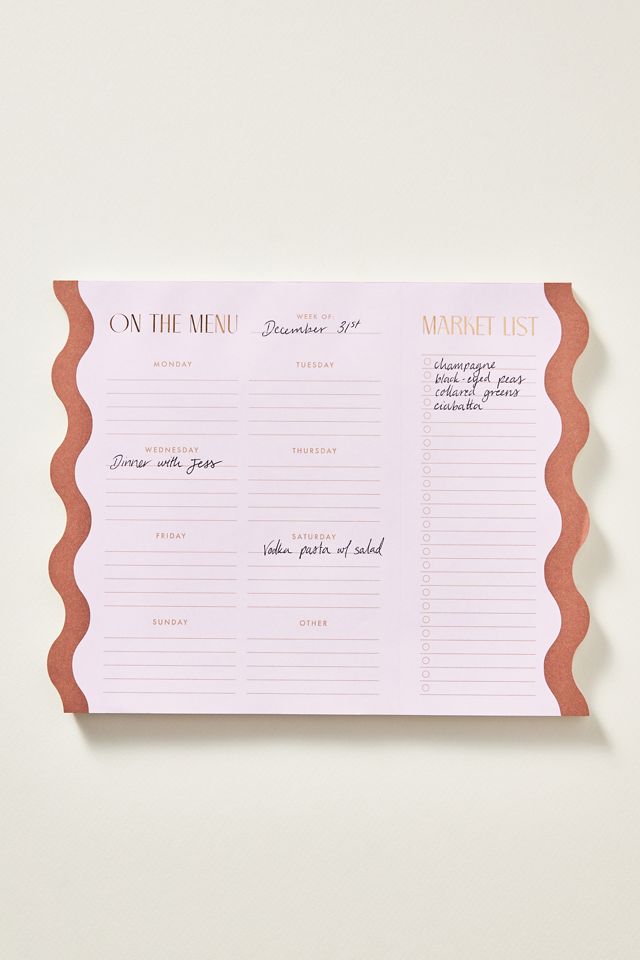 ON THE MENU
WEEK OF:
December 31st
MONDAY
TUESDAY
WEDNESDAY
Dinner with Jess
THURSDAY
FRIDAY
SATURDAY
Vodka pasta w/ salad
SUNDAY
OTHER
MARKET LIST
champagne
black-eyed peas
collared greens
ciabatta